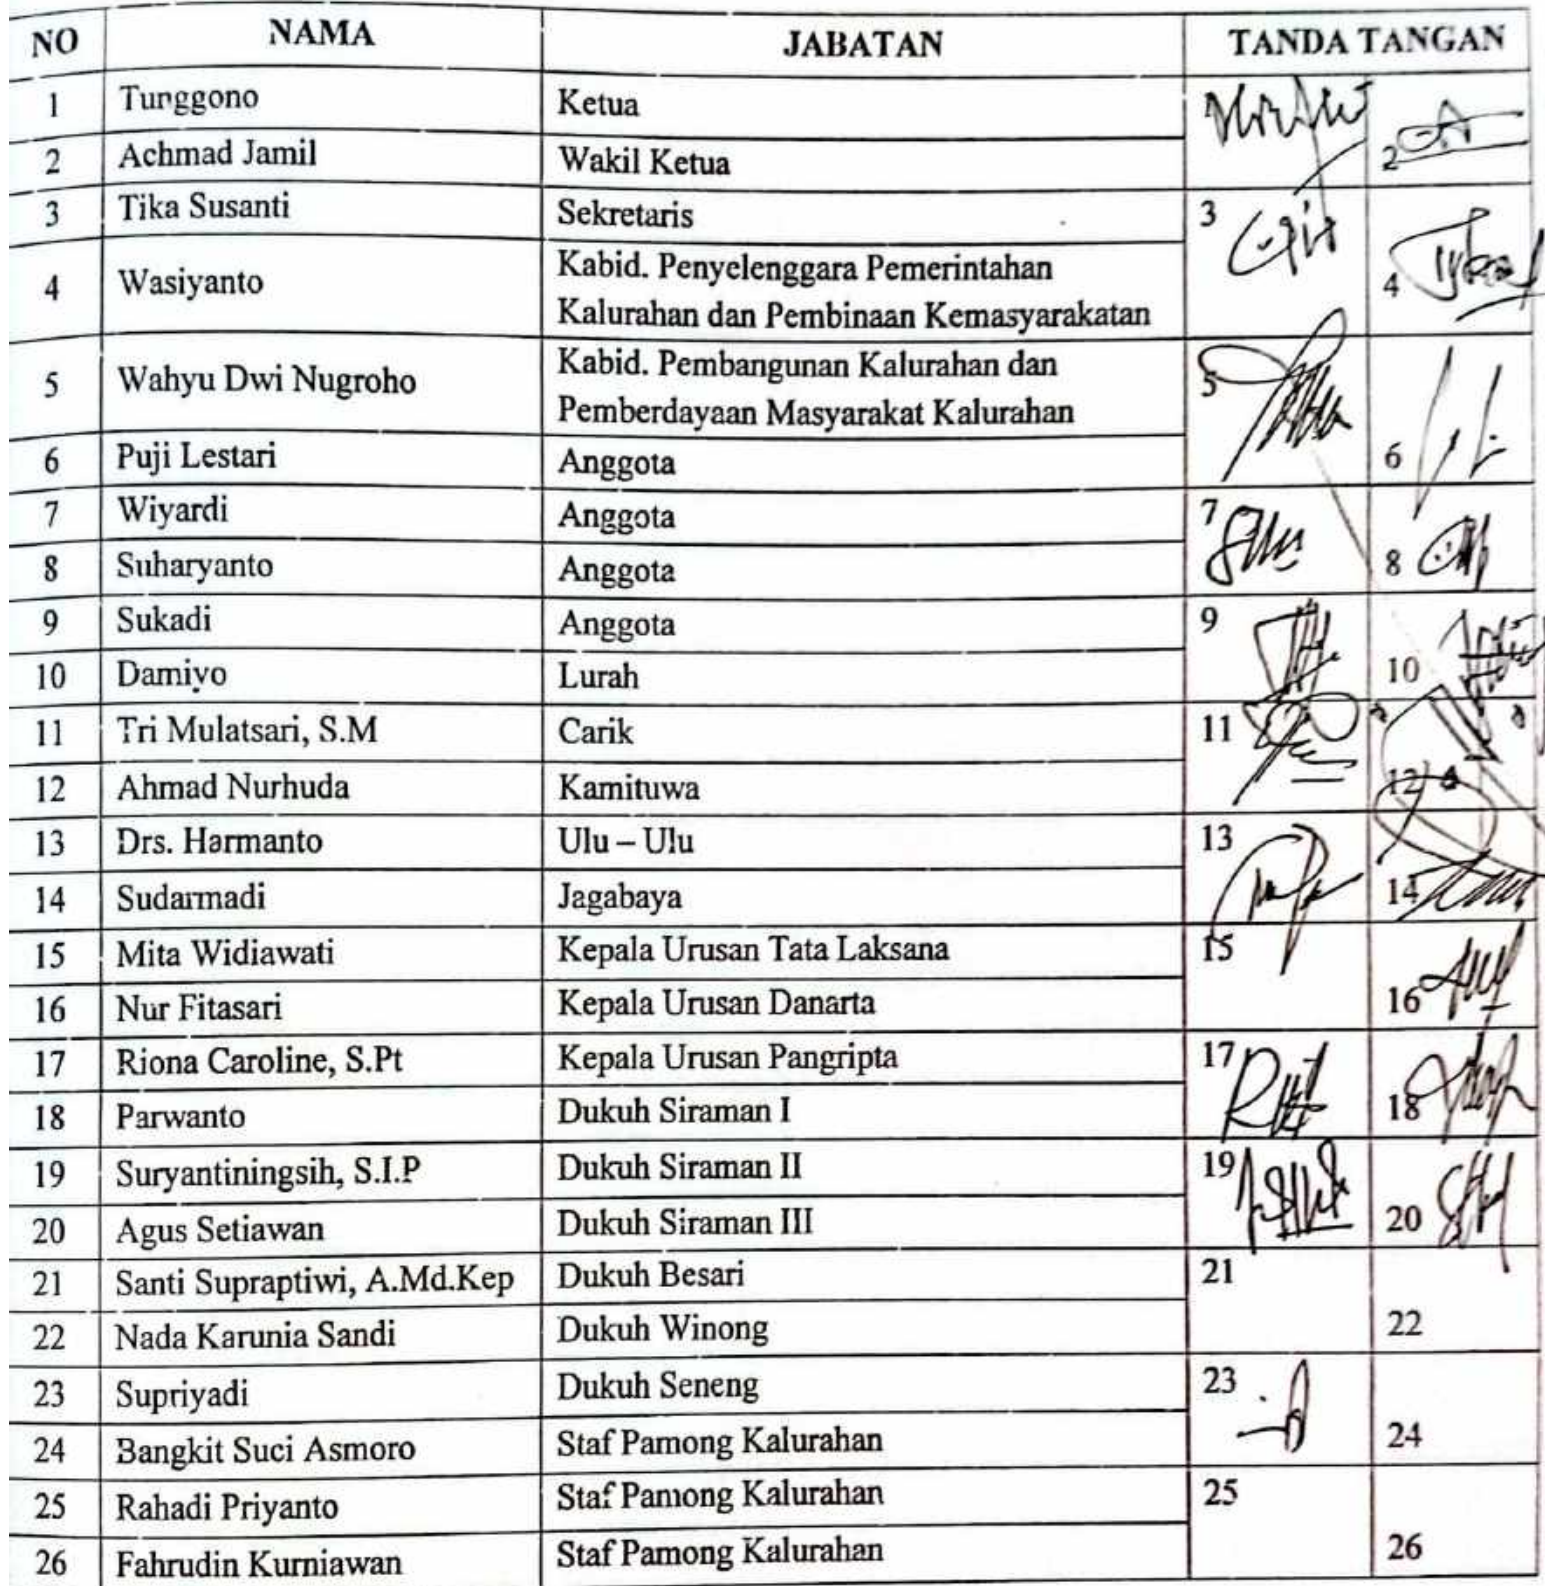 NO NAMA JABATAN TANDA TANGAN
1 Tunggono Ketua
2 Achmad Jamil Wakil Ketua 2
3 Tika Susanti Sekretaris 3
4 Wasiyanto Kabid. Penyelenggara Pemerintahan
Kalurahan dan Pembinaan Kemasyarakatan 4
5 Wahyu Dwi Nugroho Kabid. Pembangunan Kalurahan dan
Pemberdayaan Masyarakat Kalurahan 5
6 Puji Lestari Anggota 6
7 Wiyardi Anggota 7
8 Suharyanto Anggota 8
9 Sukadi Anggota 9
10 Damiyo Lurah 10
11 Tri Mulatsari, S.M Carik 11
12 Ahmad Nurhuda Kamituwa 12
13 Drs. Harmanto Ulu – Ulu 13
14 Sudarmadi Jagabaya 14
15 Mita Widiawati Kepala Urusan Tata Laksana 15
16 Nur Fitasari Kepala Urusan Danarta 16
17 Riona Caroline, S.Pt Kepala Urusan Pangripta 17
18 Parwanto Dukuh Siraman I 18
19 Suryantiningsih, S.I.P Dukuh Siraman II 19
20 Agus Setiawan Dukuh Siraman III 20
21 Santi Supraptiwi, A.Md.Kep Dukuh Besari 21
22 Nada Karunia Sandi Dukuh Winong 22
23 Supriyadi Dukuh Seneng 23
24 Bangkit Suci Asmoro Staf Pamong Kalurahan 24
25 Rahadi Priyanto Staf Pamong Kalurahan 25
26 Fahrudin Kurniawan Staf Pamong Kalurahan 26